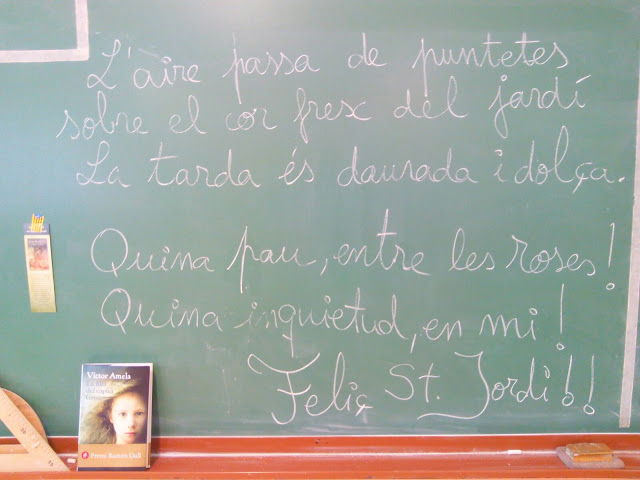 L'aire passa de puntetes
sobre el cor fresc del jardí
La tarda és daurada i dolça.
Quina pau, entre les roses!
Quina inquietud, en mi!
Feliç St. Jordi!!
Víctor Amela
del capità
Premi Ramon Llull